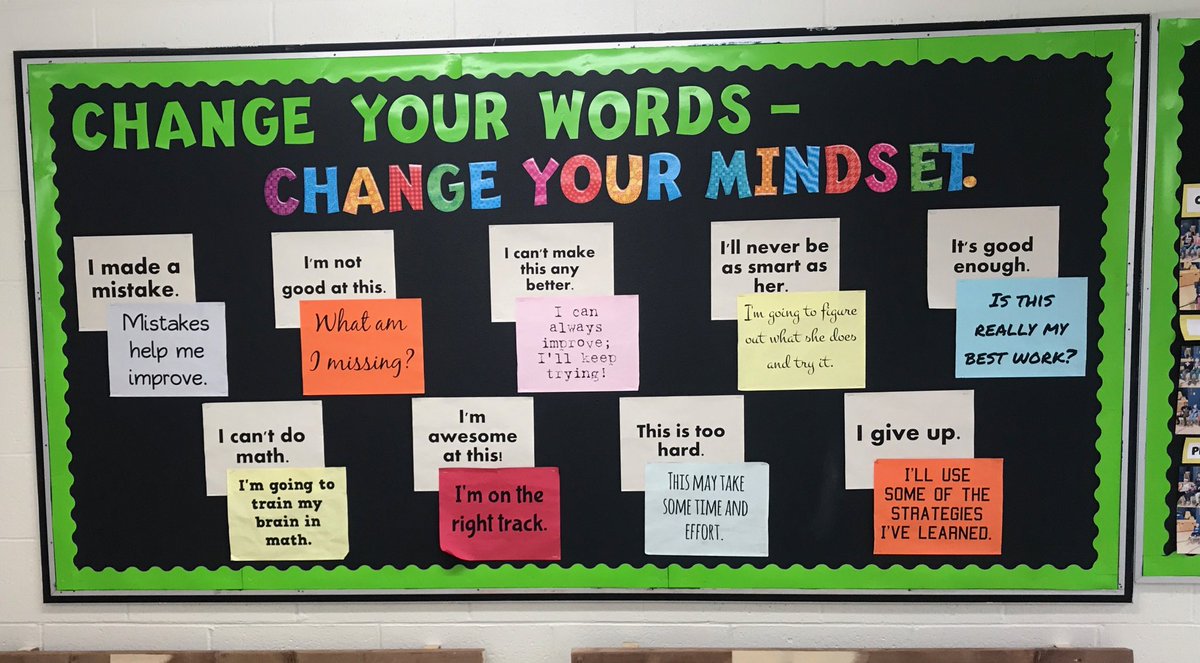 CHANGE YOUR WORDS -
CHANGE YOUR MINDSET.
I made a
mistake.
Mistakes
help me
improve.
I'm not
good at this.
What am
I missing?
I can't make
this any
better.
I can
always
improve;
I'll keep
trying!
I'll never be
as smart as
her.
I'm going to figure
out what she does
and try it.
It's good
enough.
IS THIS
REALLY MY
BEST WORK?
I can't do
math.
I'm going to
train my
brain in
math.
I'm
awesome
at this!
I'm on the
right track.
This is too
hard.
THIS MAY TAKE
SOME TIME AND
EFFORT.
I give up.
I'LL USE
SOME OF THE
STRATEGIES
I'VE LEARNED.